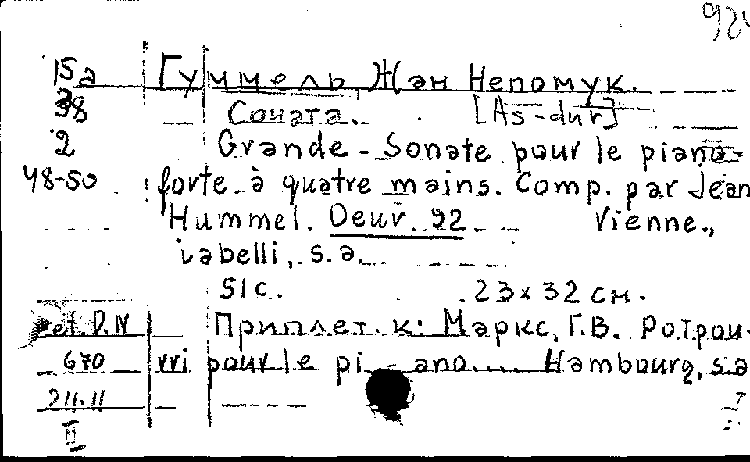 924
15а Гуммель Жан Непомук.
38 Соната. [As-dur]
2 Grande-Sonate pour le piano-
48-50 forte à quatre mains. Comp. par Jean
Hummel. Oeuv. 92 Vienne.,
s.a.
51с. 23x32 см.
Приплет. к: Маркс, Г.В. Potpou-
670 rri pour le pi-ano.... Hambourg, s.a
211.11
II